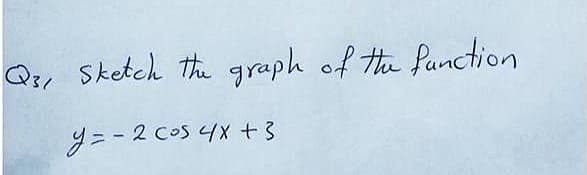 Q3, Sketch the graph of the function
y = - 2 cos 4x + 3